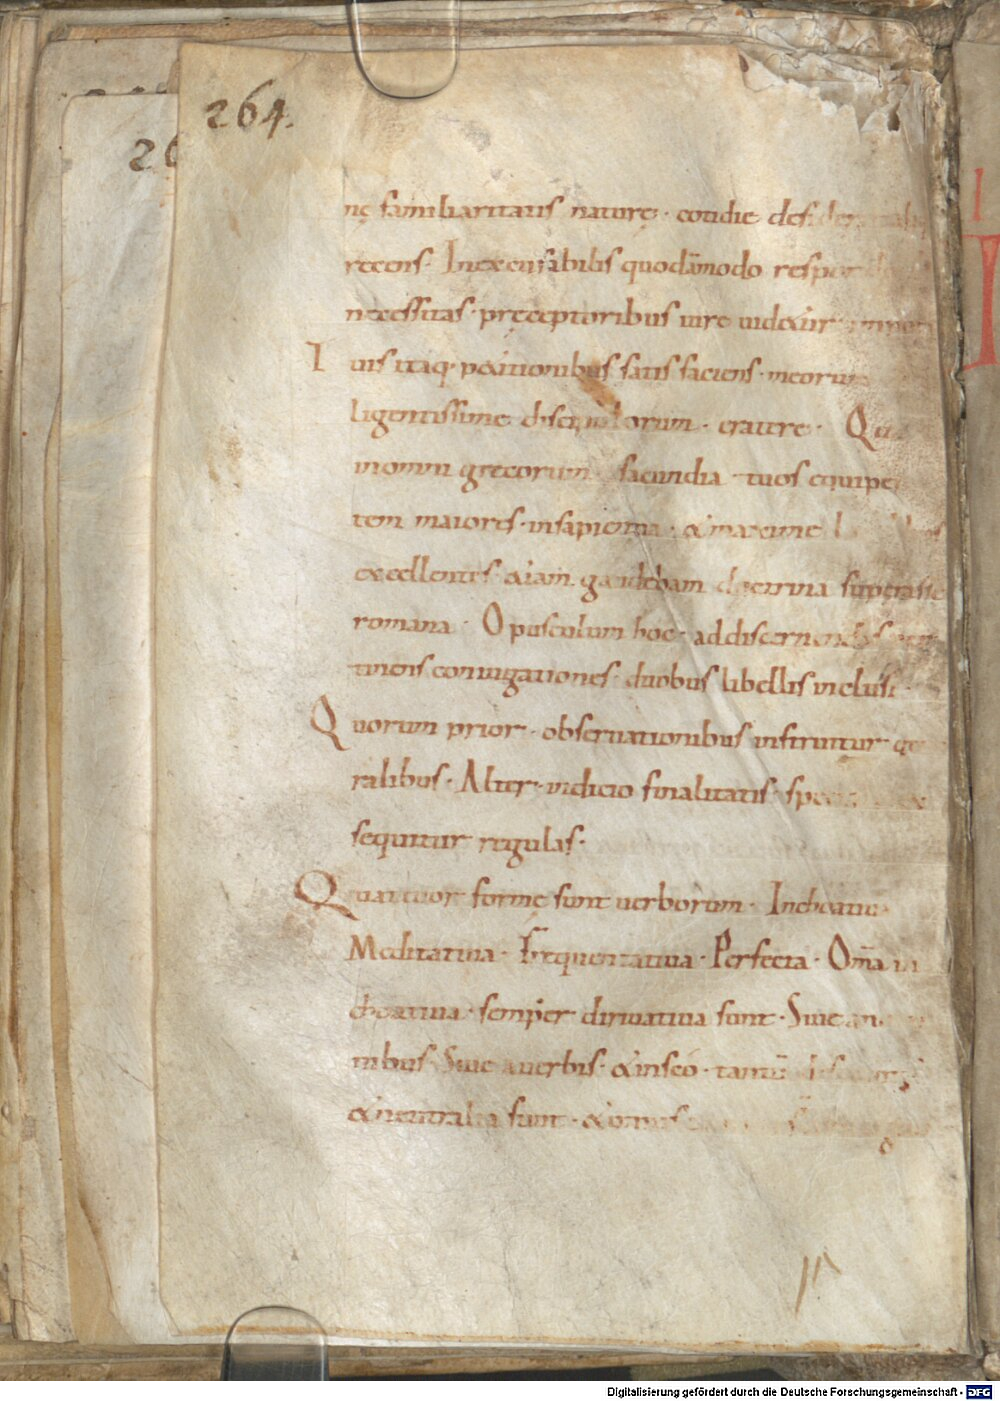 264.
26
nę familiaritatis naturę · cotidie desider
recens · Inexcusabilis quodāmodo respon
necessitas · pręceptoribus iure uidetur
Tuis itaq; petitionibus satis faciens · meorum
ligentissime discipulorum · erautre · Qu
in omni grecorum facundia · tuos equipe
tem maiores · insapientia · & maxime
excellentes &iam gaudebam doctrina superasse
romana · Opusculum hoc · ad discernendas
tinens coniugationes · duobus libellis inclusi ·
Quorum prior · obseruationibus instruitur ge
ralibus · Alter · indicio finalitatis · spec
sequitur regulas ·
Quattuor formę sunt uerborum · Inchoatiua ·
Meditatiua · Frequentatiua · Perfecta · Om̄a in
choatiua · semper diriuatiua sunt · Siue an
nibus Siue auerbis · & insco · tantū
& neutralia sunt · & omnis
Digitalisierung gefördert durch die Deutsche Forschungsgemeinschaft - DFG